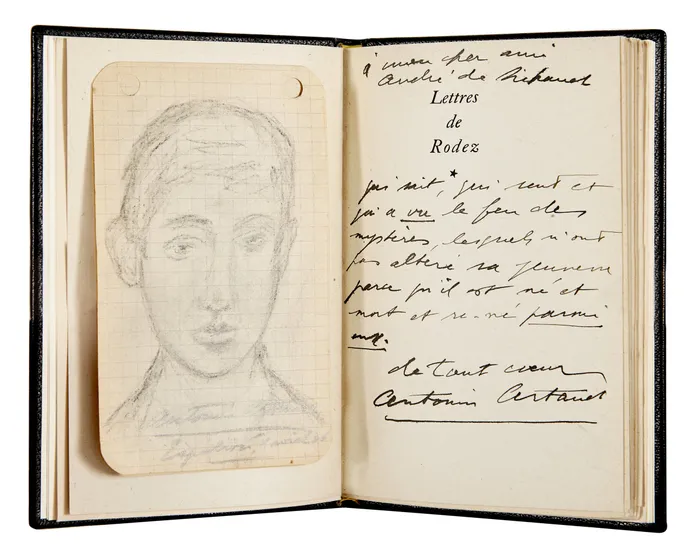 Antonin
à mon cher ami
André de
Lettres
de
Rodez
qui sait, qui sent et
qui a vu le feu des
mystères, lesquels n'ont
pas altéré sa jeunesse
parce qu'il est né et
mort et re-né parmi
eux.
de tout cœur
Antonin Artaud